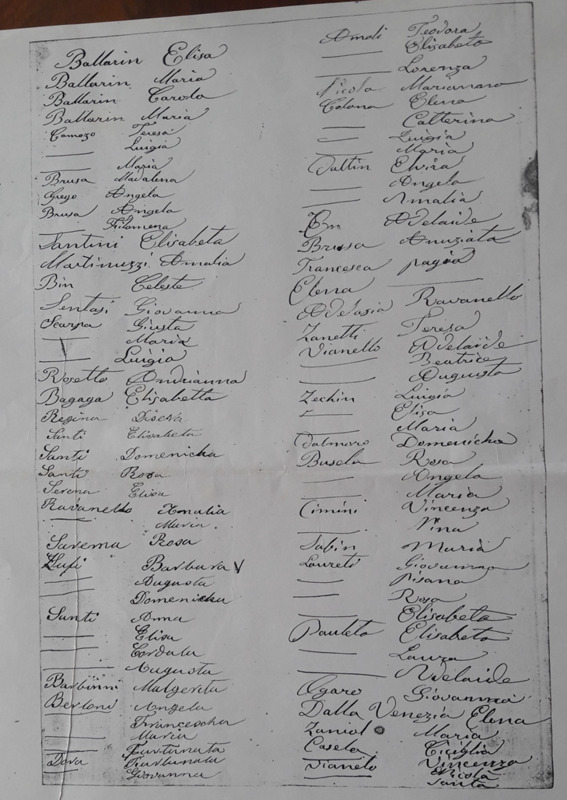 Ballarin Elisa
Ballarin Maria
Ballarin Carola
Ballarin Maria
Camozo Teresa
—— Luigia
—— Maria
Brusa Madalena
Grego Angela
Brusa Angela
—— Filomena
Santini Elisabeta
Martinuzzi Amalia
Bin Celeste
Sentasi Giovanna
Scarpa Giusta
—— Maria
—— Luigia
Rosetto Andrianna
Bagaga Elisabetta
Regina
Santi Elisabeta
Santi Domenicha
Santi Rosa
Serena Elisa
Ravanello Amalia
—— Maria
Savema Rosa
Barbara V
—— Augusta
—— Domenicha
Santi Anna
—— Elisa
—— Cordula
—— Augusta
Barbinni Malgerita
Bertoni Angela
—— Francescha
—— Maria
—— Furtunata
Dora Furtunata
—— Giovanna
Amali Teodora
—— Elisabeta
—— Lorenza
Nicola Marianana
Colona Elena
—— Catterina
—— Luigia
—— Maria
Dattin Elvira
—— Angela
—— Amalia
Em Adelaide
Brusa Anuziata
Francesca pagia
Elena ——
Adelasia Ravanello
Zanetti Teresa
Vianello Adelaide
—— Beatrice
—— Augusta
Zechin Luigia
—— Elisa
—— Maria
Dalmoro Domenicha
Busela Rosa
—— Angela
—— Maria
Cimini Vincenza
—— Nina
Sabin Maria
Laureti Giovanna
—— Pisana
—— Rosa
—— Elisabeta
Pauleto Elisabeta
—— Lauza
—— Adelaide
Ogaro Giovanna
Dalla Venezia Elena
Zaniol Maria
Casela Ciciglia
Vianelo Vincenza
—— Nicola
—— Santa